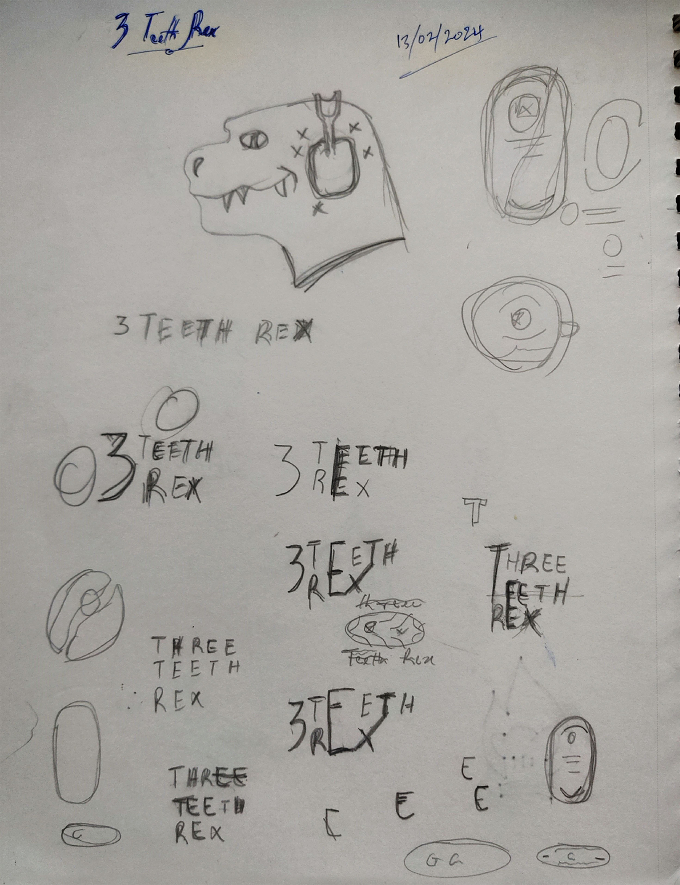 3 Teeth Rex
13/02/2024
3 TEETH REX
3 TEETH
REX
3 TEETH
REX
T
3 TEETH
REX
THREE
TEETH
REX
three
Teeth Rex
THREE
TEETH
REX
3 TEETH
REX
THREE
TEETH
REX
E
E
E
C
G G
C